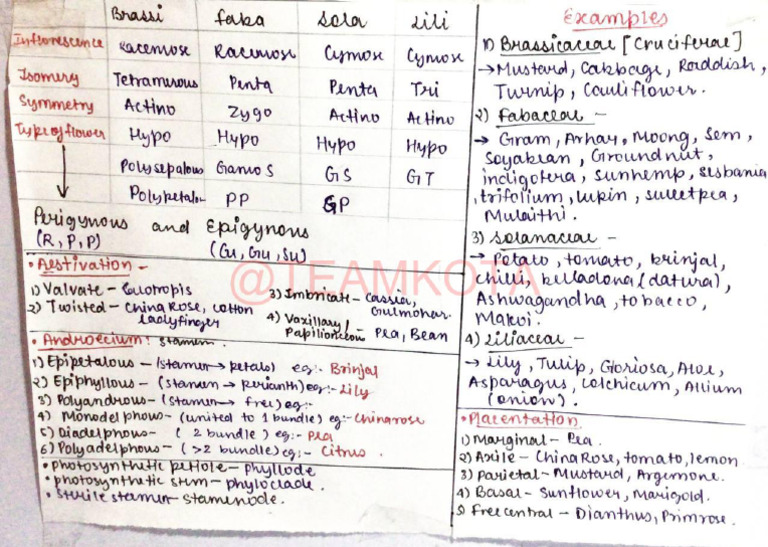 Brassi faba Sola Lili
Inflorescence Racemose Racemose Cymose Cymose
Isomery Tetramerous Penta Penta Tri
Symmetry Actino Zygo Actino Actino
Type of flower Hypo Hypo Hypo Hypo
Polysepalous Gamo S GS GT
Polypetalou PP GP
Perigynous and Epigynous
(R, P, P) (Gu, Gu, Su)
• Aestivation -
1) Valvate - Calotropis
2) Twisted - China Rose, cotton
ladyfinger
3) Imbricate - Cassia,
Gulmohar.
4) Vaxillary/
Papilionceous - Pea, Bean
• Androecium: Stamen.
1) Epipetalous - (Stamen → petals) eg:- Brinjal
2) Epiphyllous - (Stamen → perianth) eg:- Lily
3) Polyandrous - (Stamen → free) eg:-
4) Monodelphous - (united to 1 bundle) eg:- Chinarose
5) Diadelphous - ( 2 bundle ) eg:- Pea
6) Polyadelphous - (>2 bundle) eg:- Citrus.
• Photosynthetic petiole - phyllode
• photosynthetic stem - phyloclade.
• sterile stamen - stamenode.
Examples
1) Brassicaceae [Cruciferae]
→ Mustard, Cabbage, Raddish,
Turnip, Cauliflower.
2) Fabaceae -
→ Gram, Arhar, Moong, Sem,
Soyabean, Groundnut,
indigofera, Sunhemp, Sesbania
, trifolium, lupin, sweetpea,
Mulaithi.
3) Solanaceae -
→ Potato, tomato, brinjal,
chilli, belladona (datura),
Ashwagandha, tobacco,
Makoi.
4) Liliaceae -
→ Lily, Tulip, Gloriosa, Aloe,
Asparagus, Colchicum, Allium
(onion).
• Placentation
1) Marginal - Pea.
2) Axile - China Rose, tomato, lemon.
3) Parietal - Mustard, Argemone.
4) Basal - Sunflower, Marigold.
5) Free central - Dianthus, Primrose.
@TEAMKOTA